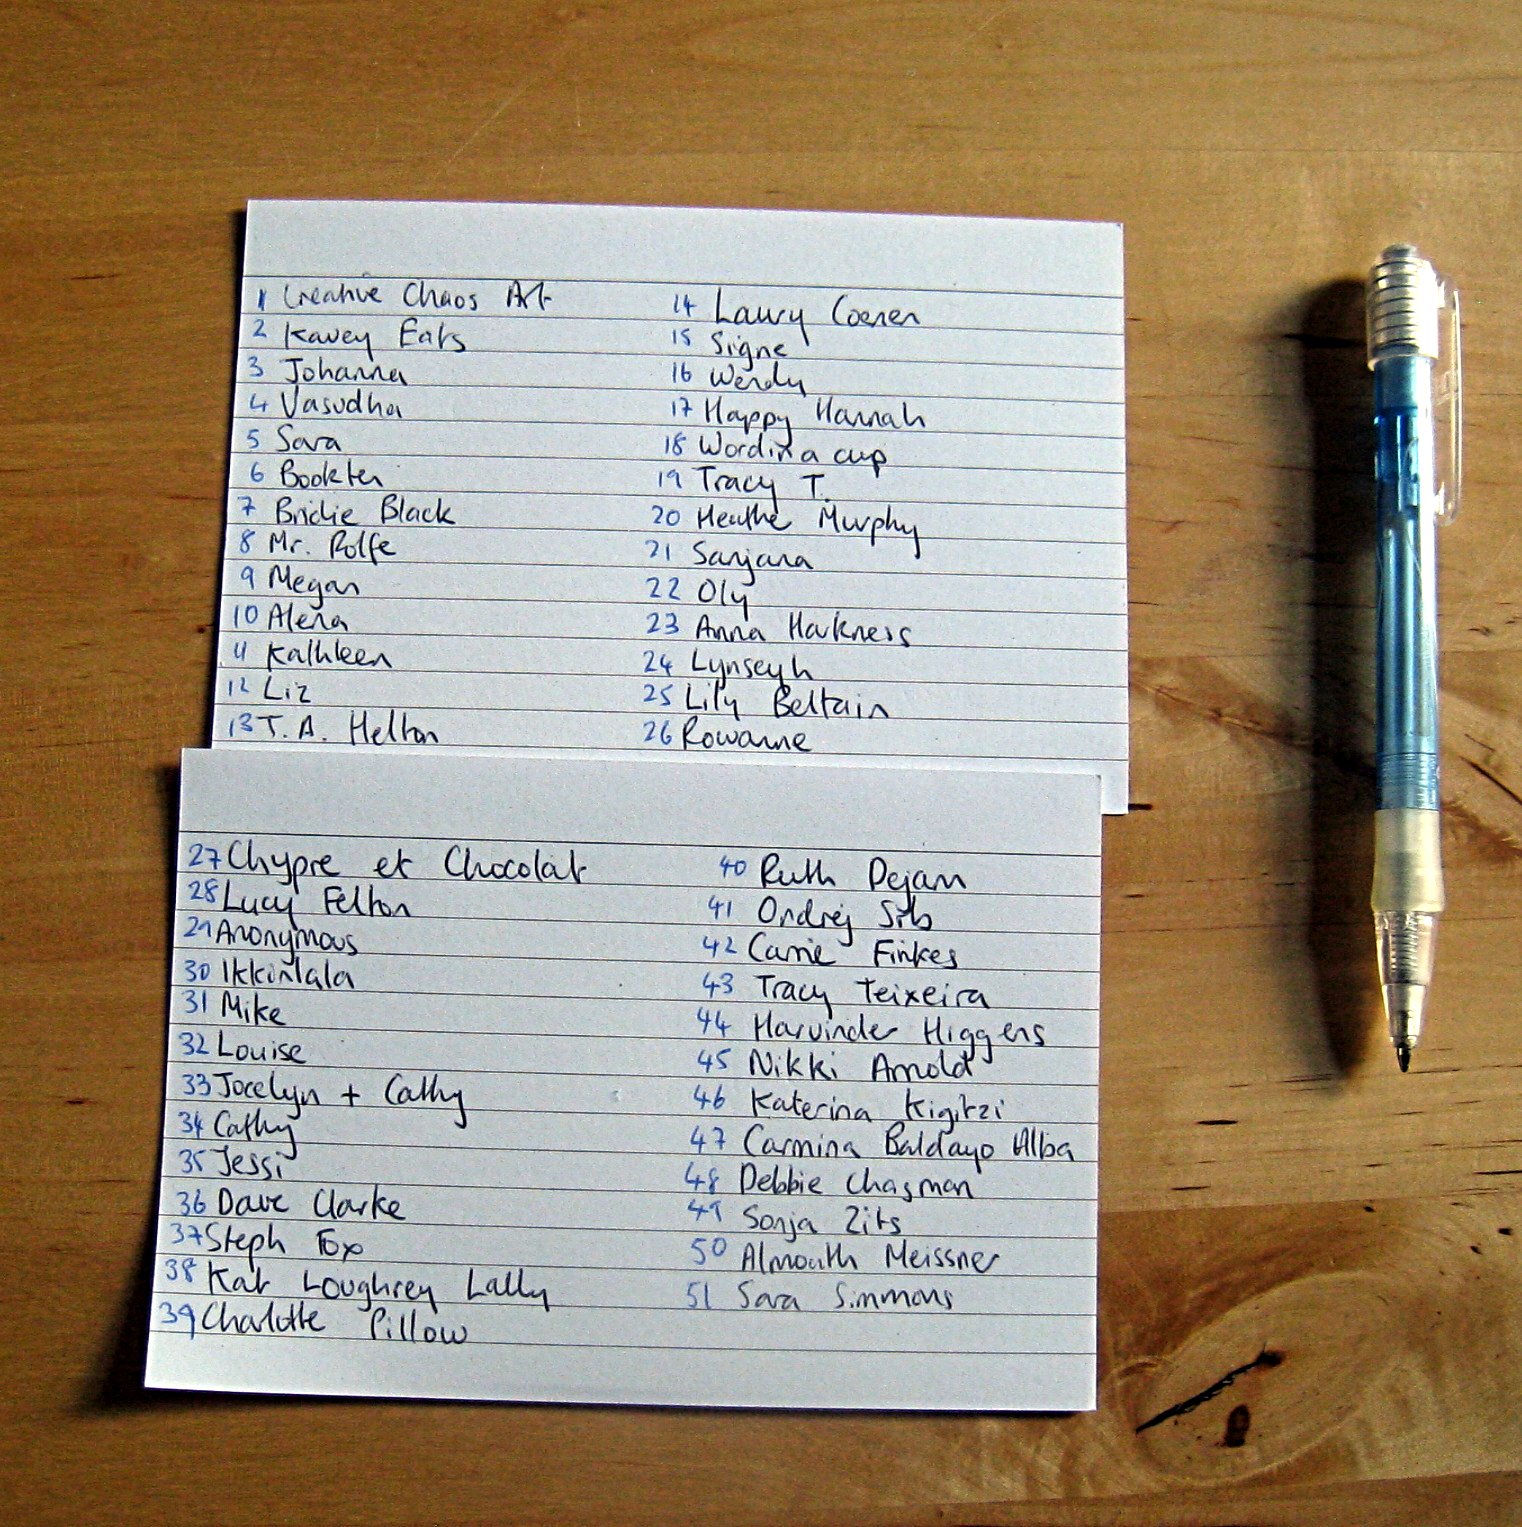 1 Creative Chaos Art
2 Kavey Eats
3 Johanna
4 Vasudha
5 Sara
6 Bookter
7 Bridie Black
8 Mr. Rolfe
9 Megan
10 Alena
11 Kathleen
12 Liz
13 T. A. Helton
14 Laury Coenen
15 Signe
16 Wendy
17 Happy Hannah
18 Wordinacup
19 Tracy T.
20 Heather Murphy
21 Sanjana
22 Oly
23 Anna Harkness
24 Lynseyh
25 Lily Beltain
26 Rowanne
27 Chypre et Chocolat
28 Lucy Felton
29 Anonymous
30 Ikkinlala
31 Mike
32 Louise
33 Jocelyn + Cathy
34 Cathy
35 Jessi
36 Dave Clarke
37 Steph Fox
38 Kat Loughrey Lally
39 Charlotte Pillow
40 Ruth Dejam
41 Ondrej Srb
42 Carrie Finkes
43 Tracy Teixeira
44 Harvinder Higgens
45 Nikki Arnold
46 Katerina Kigitzi
47 Carmina Baldayo Alba
48 Debbie Chasman
49 Sonja Zits
50 Almouth Meissner
51 Sara Simmons